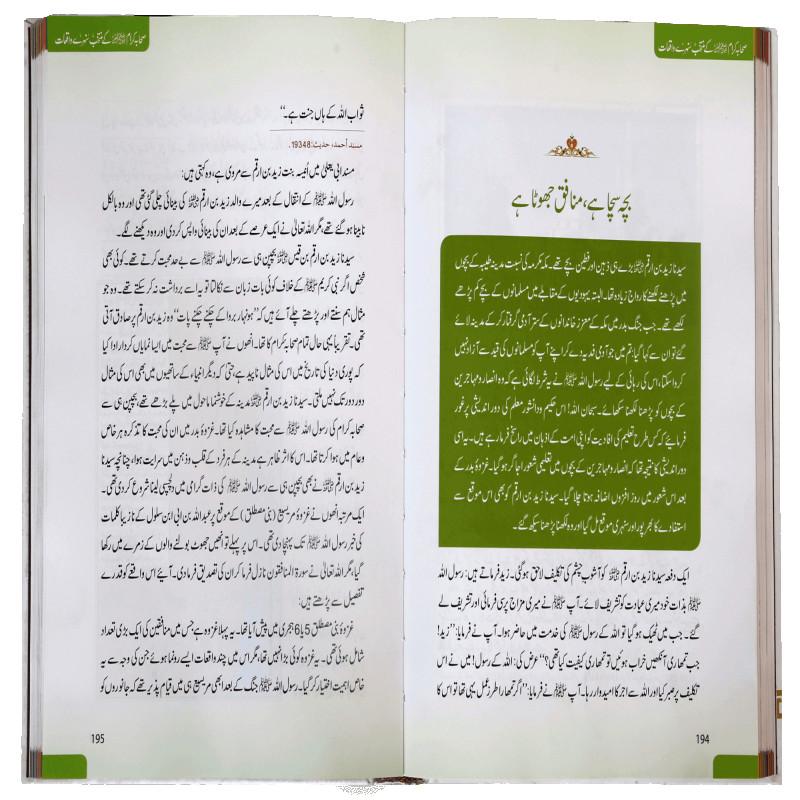 صحابہ کرام ﷢ کے منتخب سنہرے واقعات
بچہ سچا ہے، منافق جھوٹا ہے
سیدنا زید بن ارقم ﷜ بڑے ہی ذہین اور فطین بچے تھے۔ مکہ مکرمہ کی نسبت مدینہ طیبہ کے بچوں
میں پڑھنے لکھنے کا رواج زیادہ تھا۔ البتہ یہودیوں کے مقابلے میں مسلمانوں کے بچے کم پڑھے
لکھے تھے۔ جب جنگ بدر میں مکہ کے معزز خاندانوں کے ستر آدمی گرفتار کر کے مدینہ لائے
گئے تو ان سے کہا گیا: تم میں جو آدمی فدیہ دے کر اپنے آپ کو مسلمانوں کی قید سے آزاد نہیں
کروا سکتا، اس کی رہائی کے لیے رسول اللہ ﷺ نے یہ شرط لگائی ہے کہ وہ انصار و مہاجرین
کے بچوں کو پڑھنا لکھنا سکھائے۔ سبحان اللہ! اس حکیم و دانشور معلم کی دور اندیشی پر غور
فرمایئے کہ کس طرح تعلیم کی افادیت کو اپنی امت کے اذہان میں راسخ فرما رہے ہیں۔ یہ اسی
دور اندیشی کا نتیجہ تھا کہ انصار و مہاجرین کے بچوں میں تعلیمی شعور اجاگر ہو گیا۔ غزوۂ بدر کے
بعد اس شعور میں روز افزوں اضافہ ہوتا چلا گیا۔ سیدنا زید بن ارقم کو بھی اس موقع سے
استفادے کا بھرپور اور سنہری موقع مل گیا اور وہ لکھنا پڑھنا سیکھ گئے۔
ایک دفعہ سیدنا زید بن ارقم ﷜ کو آشوب چشم کی تکلیف لاحق ہو گئی۔ زید فرماتے ہیں: رسول اللہ
ﷺ بذات خود میری عیادت کو تشریف لائے۔ آپ ﷺ نے میری مزاج پرسی فرمائی اور تشریف لے
گئے۔ جب میں ٹھیک ہو گیا تو اللہ کے رسول ﷺ کی خدمت میں حاضر ہوا۔ آپ نے فرمایا: ’’زید!
جب تمھاری آنکھیں خراب ہوئیں تو تمھاری کیفیت کیا تھی؟‘‘ عرض کی: اللہ کے رسول! میں نے اس
تکلیف پر صبر کیا اور اللہ سے اجر کا امیدوار رہا۔ آپ ﷺ نے فرمایا: ’’اگر تمھارا طرز عمل یہی تھا تو اس کا
194
صحابہ کرام ﷢ کے منتخب سنہرے واقعات
ثواب اللہ کے ہاں جنت ہے۔‘‘
مسند أحمد، حدیث: 19348.
مسند ابی یعلیٰ میں اُنیسہ بنت زید بن ارقم سے مروی ہے، وہ کہتی ہیں:
رسول اللہ ﷺ کے انتقال کے بعد میرے والد زید بن ارقم ﷜ کی بینائی چلی گئی تھی اور وہ بالکل
نابینا ہو گئے تھے، مگر اللہ تعالیٰ نے ایک عرصے کے بعد ان کی بینائی واپس کر دی اور وہ دیکھنے لگے۔
سیدنا زید بن ارقم بن قیس ﷜ بچپن ہی سے رسول اللہ ﷺ سے بے حد محبت کرتے تھے۔ کوئی بھی
شخص اگر نبی کریم ﷺ کے خلاف کوئی بات زبان سے نکالتا تو یہ اسے برداشت نہ کر سکتے تھے۔ وہ جو
مثال ہم سنتے اور پڑھتے چلے آئے ہیں کہ ’’ہونہار بروا کے چکنے چکنے پات‘‘ وہ زید بن ارقم پر صادق آتی
تھی۔ تقریباً یہی حال تمام صحابہ کرام کا تھا۔ انھوں نے آپ ﷺ سے محبت میں ایسا نمایاں کردار ادا کیا
کہ پوری دنیا کی تاریخ میں اس کی مثال ناپید ہے حتیٰ کہ دیگر انبیاء کے ساتھیوں میں بھی اس کی مثال
دور دور تک نہیں ملتی۔ سیدنا زید بن ارقم ﷜ مدینہ کے خوشنما ماحول میں پلے بڑھے تھے، بچپن ہی سے
صحابہ کرام کی رسول اللہ ﷺ سے محبت کا مشاہدہ کیا تھا۔ غزوۂ بدر میں ان کی محبت کا تذکرہ ہر خاص
و عام میں ہوا کرتا تھا۔ اس کا اثر ظاہر ہے مدینہ کے ہر فرد کے قلب و ذہن میں سرایت ہوا، چنانچہ سیدنا
زید بن ارقم ﷜ نے بھی بچپن ہی سے رسول اللہ ﷺ کی ذات گرامی میں دلچسپی لینا شروع کر دی تھی۔
ایک مرتبہ انھوں نے غزوۂ مریسیع (بنی مصطلق) کے موقع پر عبداللہ بن ابی ابن سلول کے نازیبا کلمات
کی خبر رسول اللہ ﷺ تک پہنچا دی تھی۔ اس پر پہلے تو انھیں جھوٹ بولنے والوں کے زمرے میں رکھا
گیا، مگر اللہ تعالیٰ نے سورۃ المنافقون نازل فرما کر ان کی تصدیق فرما دی۔ آیئے اس واقعے کو قدرے
تفصیل سے پڑھتے ہیں:
غزوۂ بنی مصطلق 5 یا 6 ہجری میں پیش آیا تھا۔ یہ پہلا غزوہ ہے جس میں منافقین کی ایک بڑی تعداد
شامل ہوئی تھی۔ یہ غزوہ کوئی بڑا نہیں تھا، مگر اس میں چند واقعات ایسے رونما ہوئے جن کی وجہ سے یہ
خاص اہمیت اختیار کر گیا۔ رسول اللہ ﷺ جنگ کے بعد ابھی مریسیع ہی میں قیام پذیر تھے کہ جانوروں کو
195